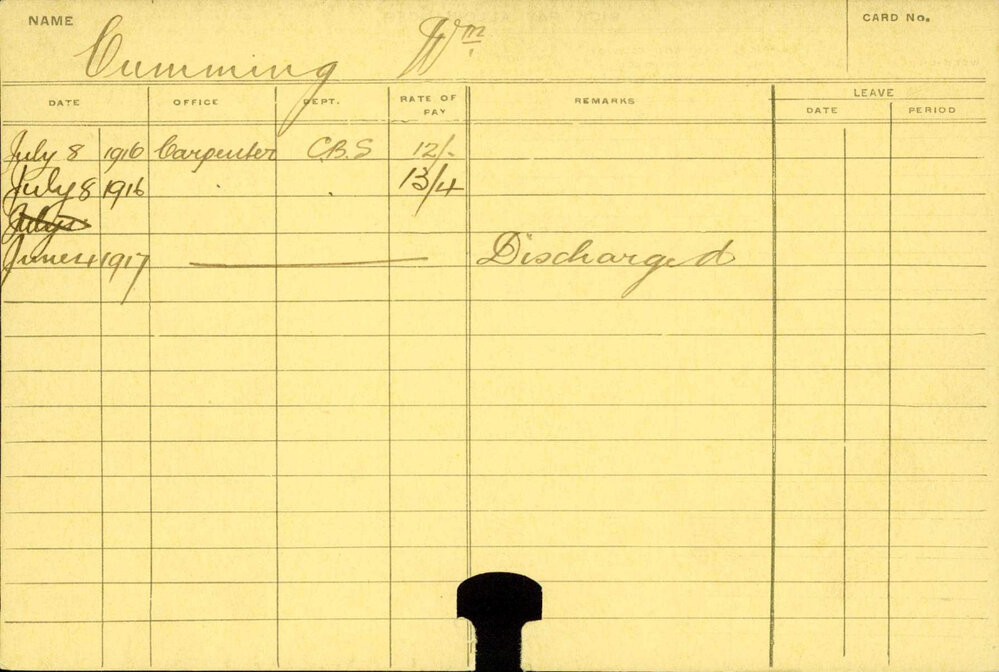 NAME CARD No.
Cumming Wm
DATE OFFICE DEPT. RATE OF PAY REMARKS LEAVE
DATE PERIOD
July 8 1916 Carpenter C.B.S 12/-
July 8 1916 . . 13/4
July
June 4 1917 Discharged